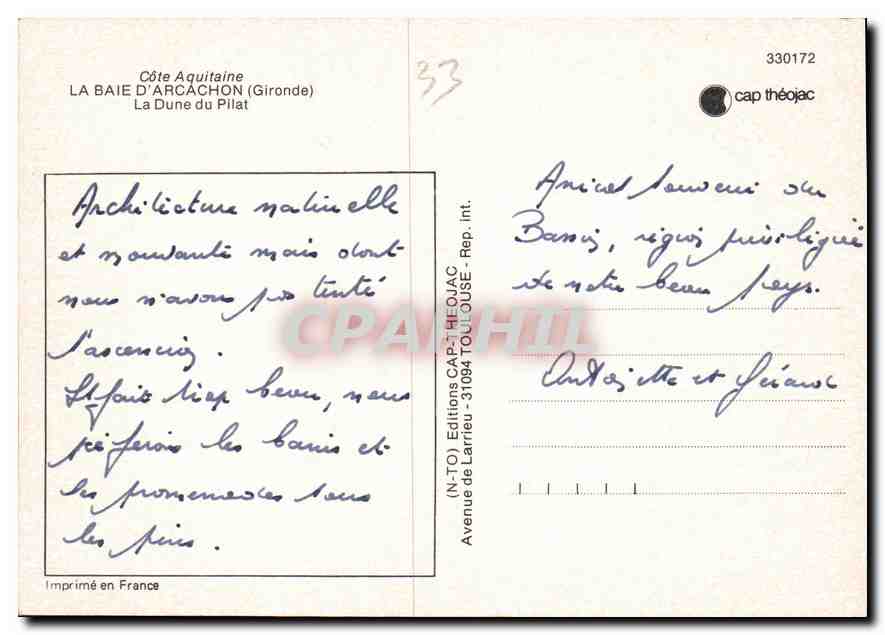 Côte Aquitaine
LA BAIE D'ARCACHON (Gironde)
La Dune du Pilat
33
330172
cap théojac
Architecture naturelle
et mouvante mais dont
nous n'avons pas tenté
l'ascension.
Il fait trop beau, nous
préferons les bains et
les promenades sous
les pins.
Imprimé en France
(N-TO) Editions CAP-THEOJAC
Avenue de Larrieu - 31094 TOULOUSE - Rep. int.
CPARHIL
Amical souvenir du
Bassin, région privilégiée
de notre beau pays.
Antoinette et Gérard